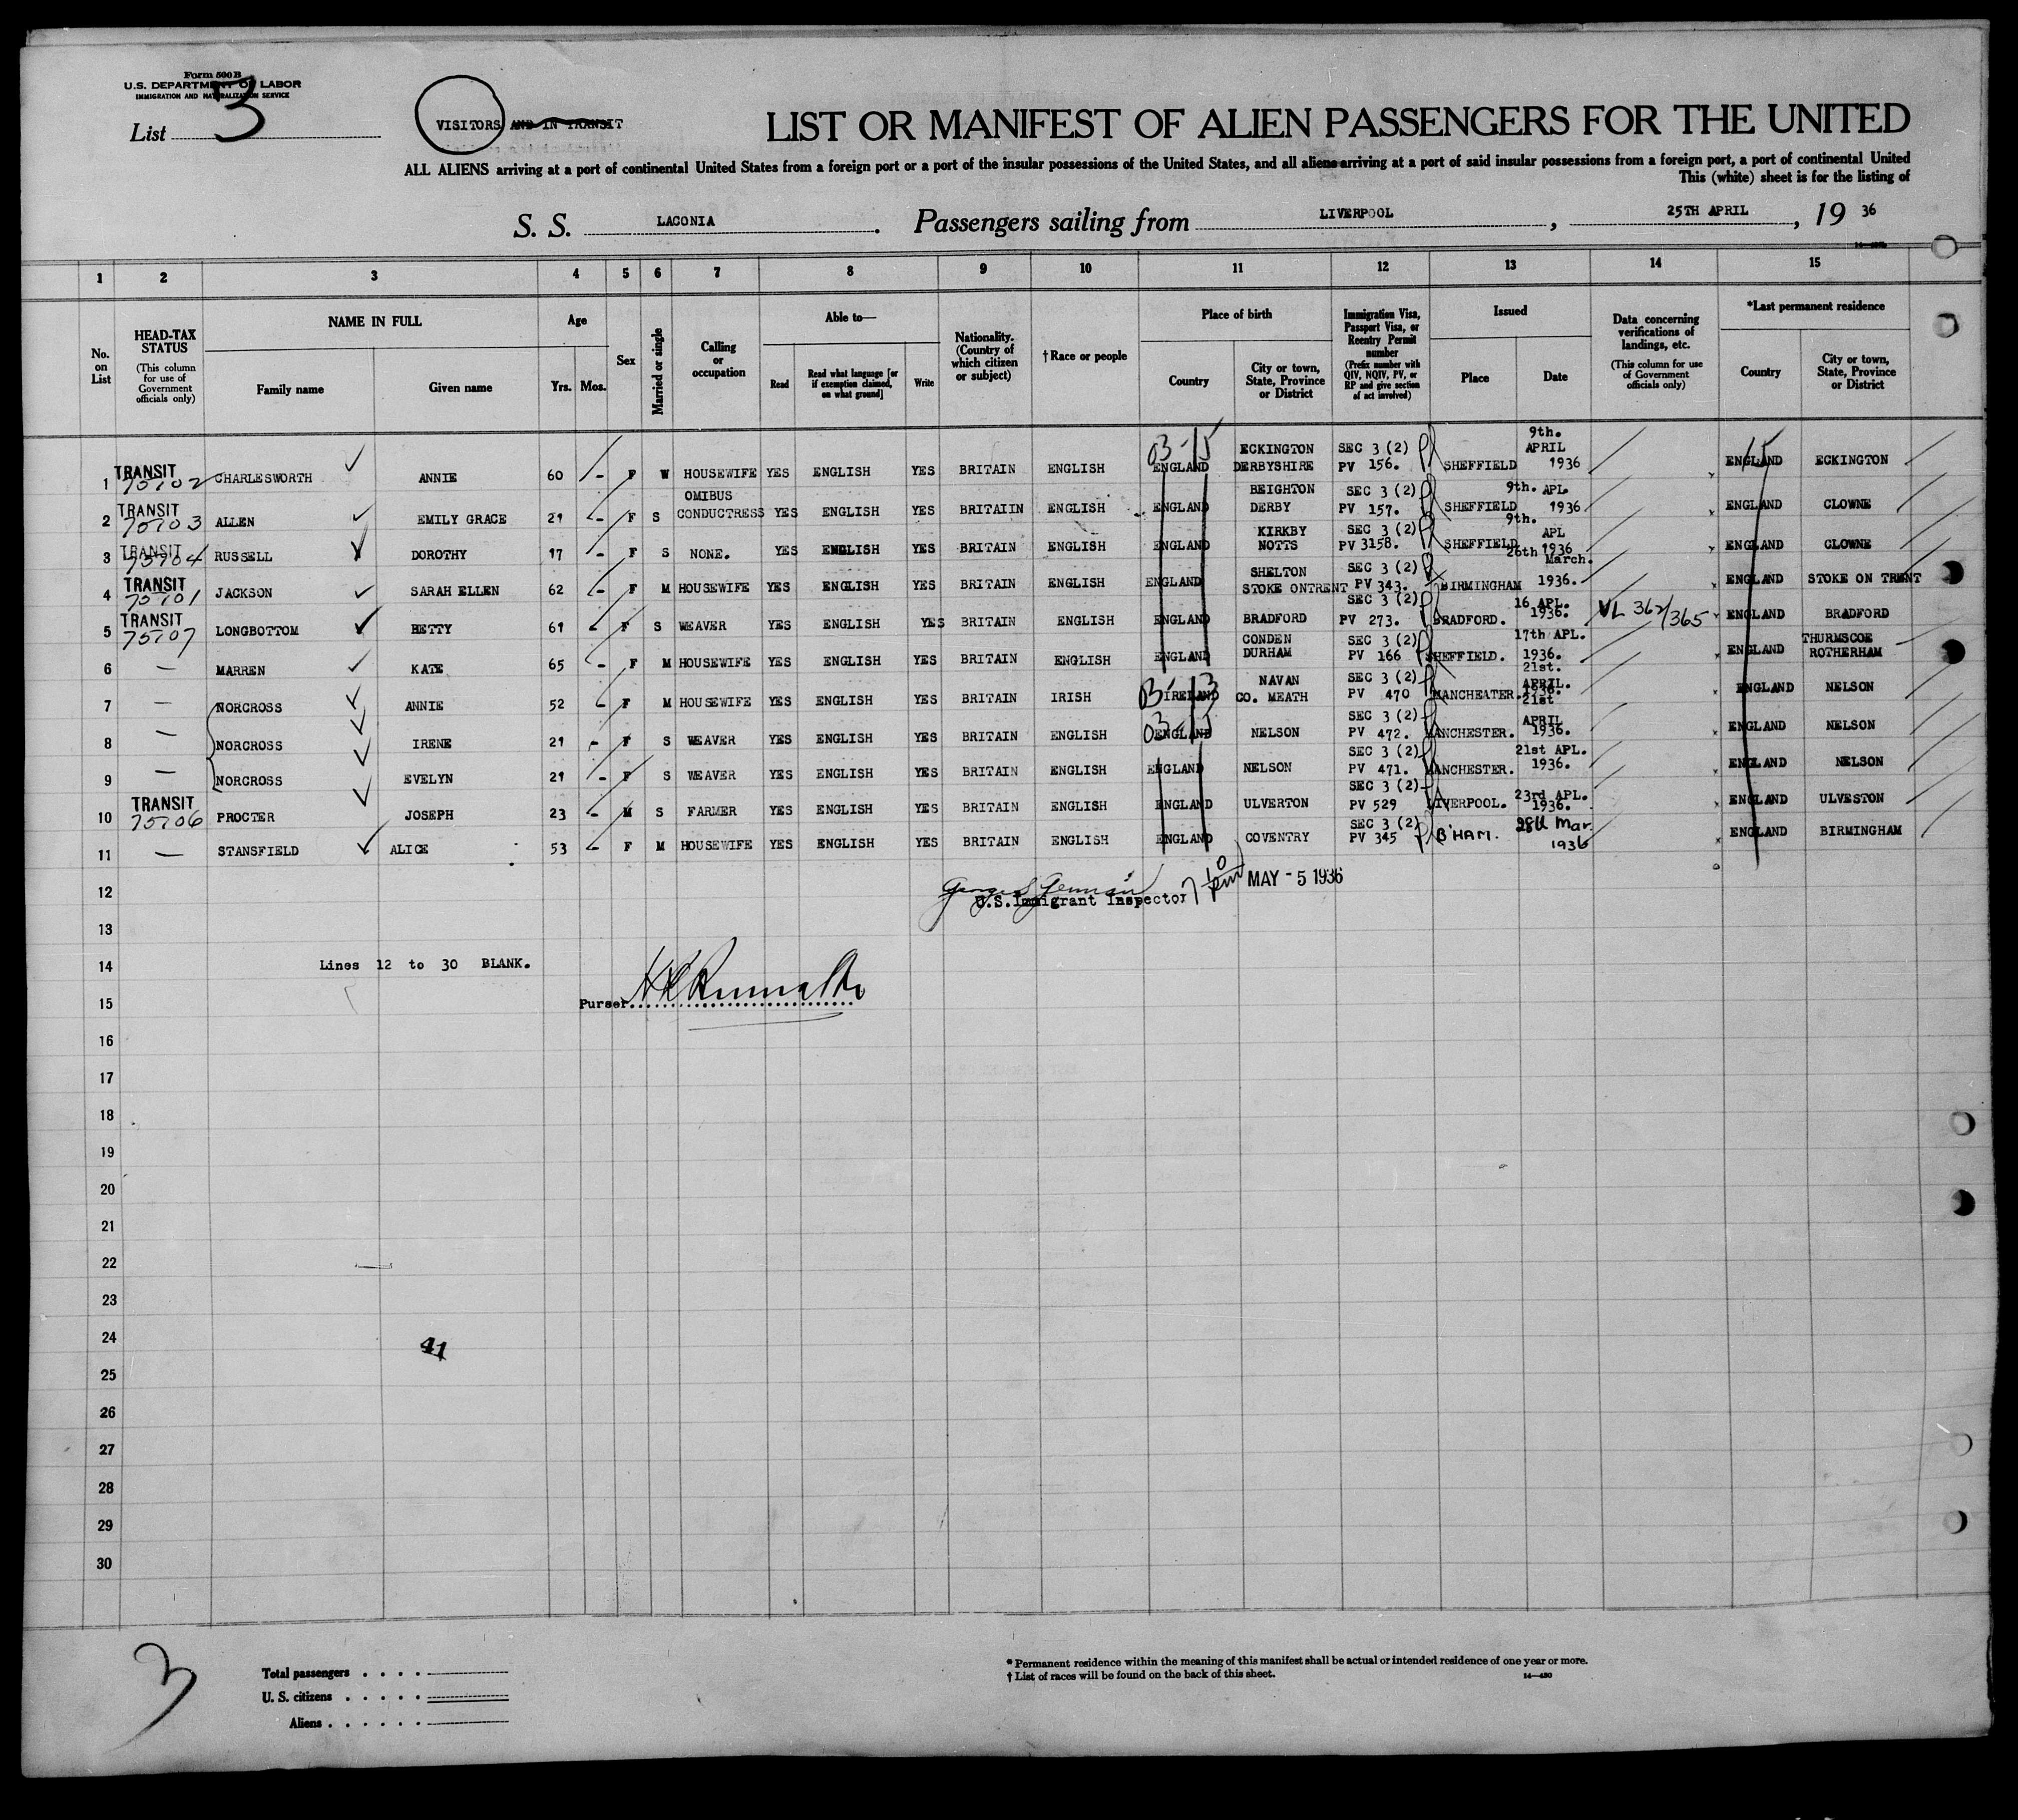 Form 500 B
U.S. DEPARTMENT OF LABOR
IMMIGRATION AND NATURALIZATION SERVICE
List 3
VISITORS AND IN TRANSIT
LIST OR MANIFEST OF ALIEN PASSENGERS FOR THE UNITED
ALL ALIENS arriving at a port of continental United States from a foreign port or a port of the insular possessions of the United States, and all aliens arriving at a port of said insular possessions from a foreign port, a port of continental United
This (white) sheet is for the listing of
S. S. LACONIA. Passengers sailing from LIVERPOOL, 25TH APRIL, 19 36
1 2 3 4 5 6 7 8 9 10 11 12 13 14 15
No. on List
HEAD-TAX STATUS
(This column for use of Government officials only)
NAME IN FULL
Family name
Given name
Age
Yrs. Mos.
Sex
Married or single
Calling or occupation
Able to—
Read
Read what language [or if exemption claimed, on what ground]
Write
Nationality. (Country of which citizen or subject)
† Race or people
Place of birth
Country
City or town, State, Province or District
Immigration Visa, Passport Visa, or Reentry Permit number
(Prefix number with QIV, NQIV, PV, or RP and give section of act involved)
Issued
Place
Date
Data concerning verifications of landings, etc.
(This column for use of Government officials only)
*Last permanent residence
Country
City or town, State, Province or District
03-15
15
1 TRANSIT 75702 CHARLESWORTH ANNIE 60 - F W HOUSEWIFE YES ENGLISH YES BRITAIN ENGLISH ENGLAND ECKINGTON DERBYSHIRE SEC 3 (2) PV 156. SHEFFIELD 9th. APRIL 1936 ENGLAND ECKINGTON
2 TRANSIT 75703 ALLEN EMILY GRACE 21 - F S OMIBUS CONDUCTRESS YES ENGLISH YES BRITAIIN ENGLISH ENGLAND BEIGHTON DERBY SEC 3 (2) PV 157. SHEFFIELD 9th. APL. 1936 ENGLAND CLOWNE
3 TRANSIT 75704 RUSSELL DOROTHY 17 - F S NONE. YES ENGLISH YES BRITAIN ENGLISH ENGLAND KIRKBY NOTTS SEC 3 (2) PV 3158. SHEFFIELD 9th. APL 1936 ENGLAND CLOWNE
4 TRANSIT 75701 JACKSON SARAH ELLEN 62 - F M HOUSEWIFE YES ENGLISH YES BRITAIN ENGLISH ENGLAND SHELTON STOKE ONTRENT SEC 3 (2) PV 343. BIRMINGHAM 26th March. 1936. ENGLAND STOKE ON TRENT
5 TRANSIT 75707 LONGBOTTOM BETTY 61 - F S WEAVER YES ENGLISH YES BRITAIN ENGLISH ENGLAND BRADFORD SEC 3 (2) PV 273. BRADFORD. 16 APL. 1936. VL 362/365 ENGLAND BRADFORD
6 — MARREN KATE 65 - F M HOUSEWIFE YES ENGLISH YES BRITAIN ENGLISH ENGLAND CONDEN DURHAM SEC 3 (2) PV 166 SHEFFIELD. 17th APL. 1936. ENGLAND THURMSCOE ROTHERHAM
7 — NORCROSS ANNIE 52 - F M HOUSEWIFE YES ENGLISH YES BRITAIN IRISH 03-13 IRELAND NAVAN CO. MEATH SEC 3 (2) PV 470 MANCHEATER. 21st. APRIL. 1936. ENGLAND NELSON
8 — NORCROSS IRENE 21 - F S WEAVER YES ENGLISH YES BRITAIN ENGLISH 03-15 ENGLAND NELSON SEC 3 (2) PV 472. MANCHESTER. 21st APRIL 1936. ENGLAND NELSON
9 — NORCROSS EVELYN 21 - F S WEAVER YES ENGLISH YES BRITAIN ENGLISH ENGLAND NELSON SEC 3 (2) PV 471. MANCHESTER. 21st APL. 1936. ENGLAND NELSON
10 TRANSIT 75706 PROCTER JOSEPH 23 - M S FARMER YES ENGLISH YES BRITAIN ENGLISH ENGLAND ULVERTON SEC 3 (2) PV 529 LIVERPOOL. 23rd APL. 1936. ENGLAND ULVESTON
11 — STANSFIELD ALICE 53 - F M HOUSEWIFE YES ENGLISH YES BRITAIN ENGLISH ENGLAND COVENTRY SEC 3 (2) PV 345 B'HAM. 28th Mar. 1936 ENGLAND BIRMINGHAM
12
U.S. Immigrant Inspector MAY - 5 1936
13
14 Lines 12 to 30 BLANK.
15 Purser
16
17
18
19
20
21
22
23
24 41
25
26
27
28
29
30
3
Total passengers
U. S. citizens
Aliens
* Permanent residence within the meaning of this manifest shall be actual or intended residence of one year or more.
† List of races will be found on the back of this sheet.
14—480